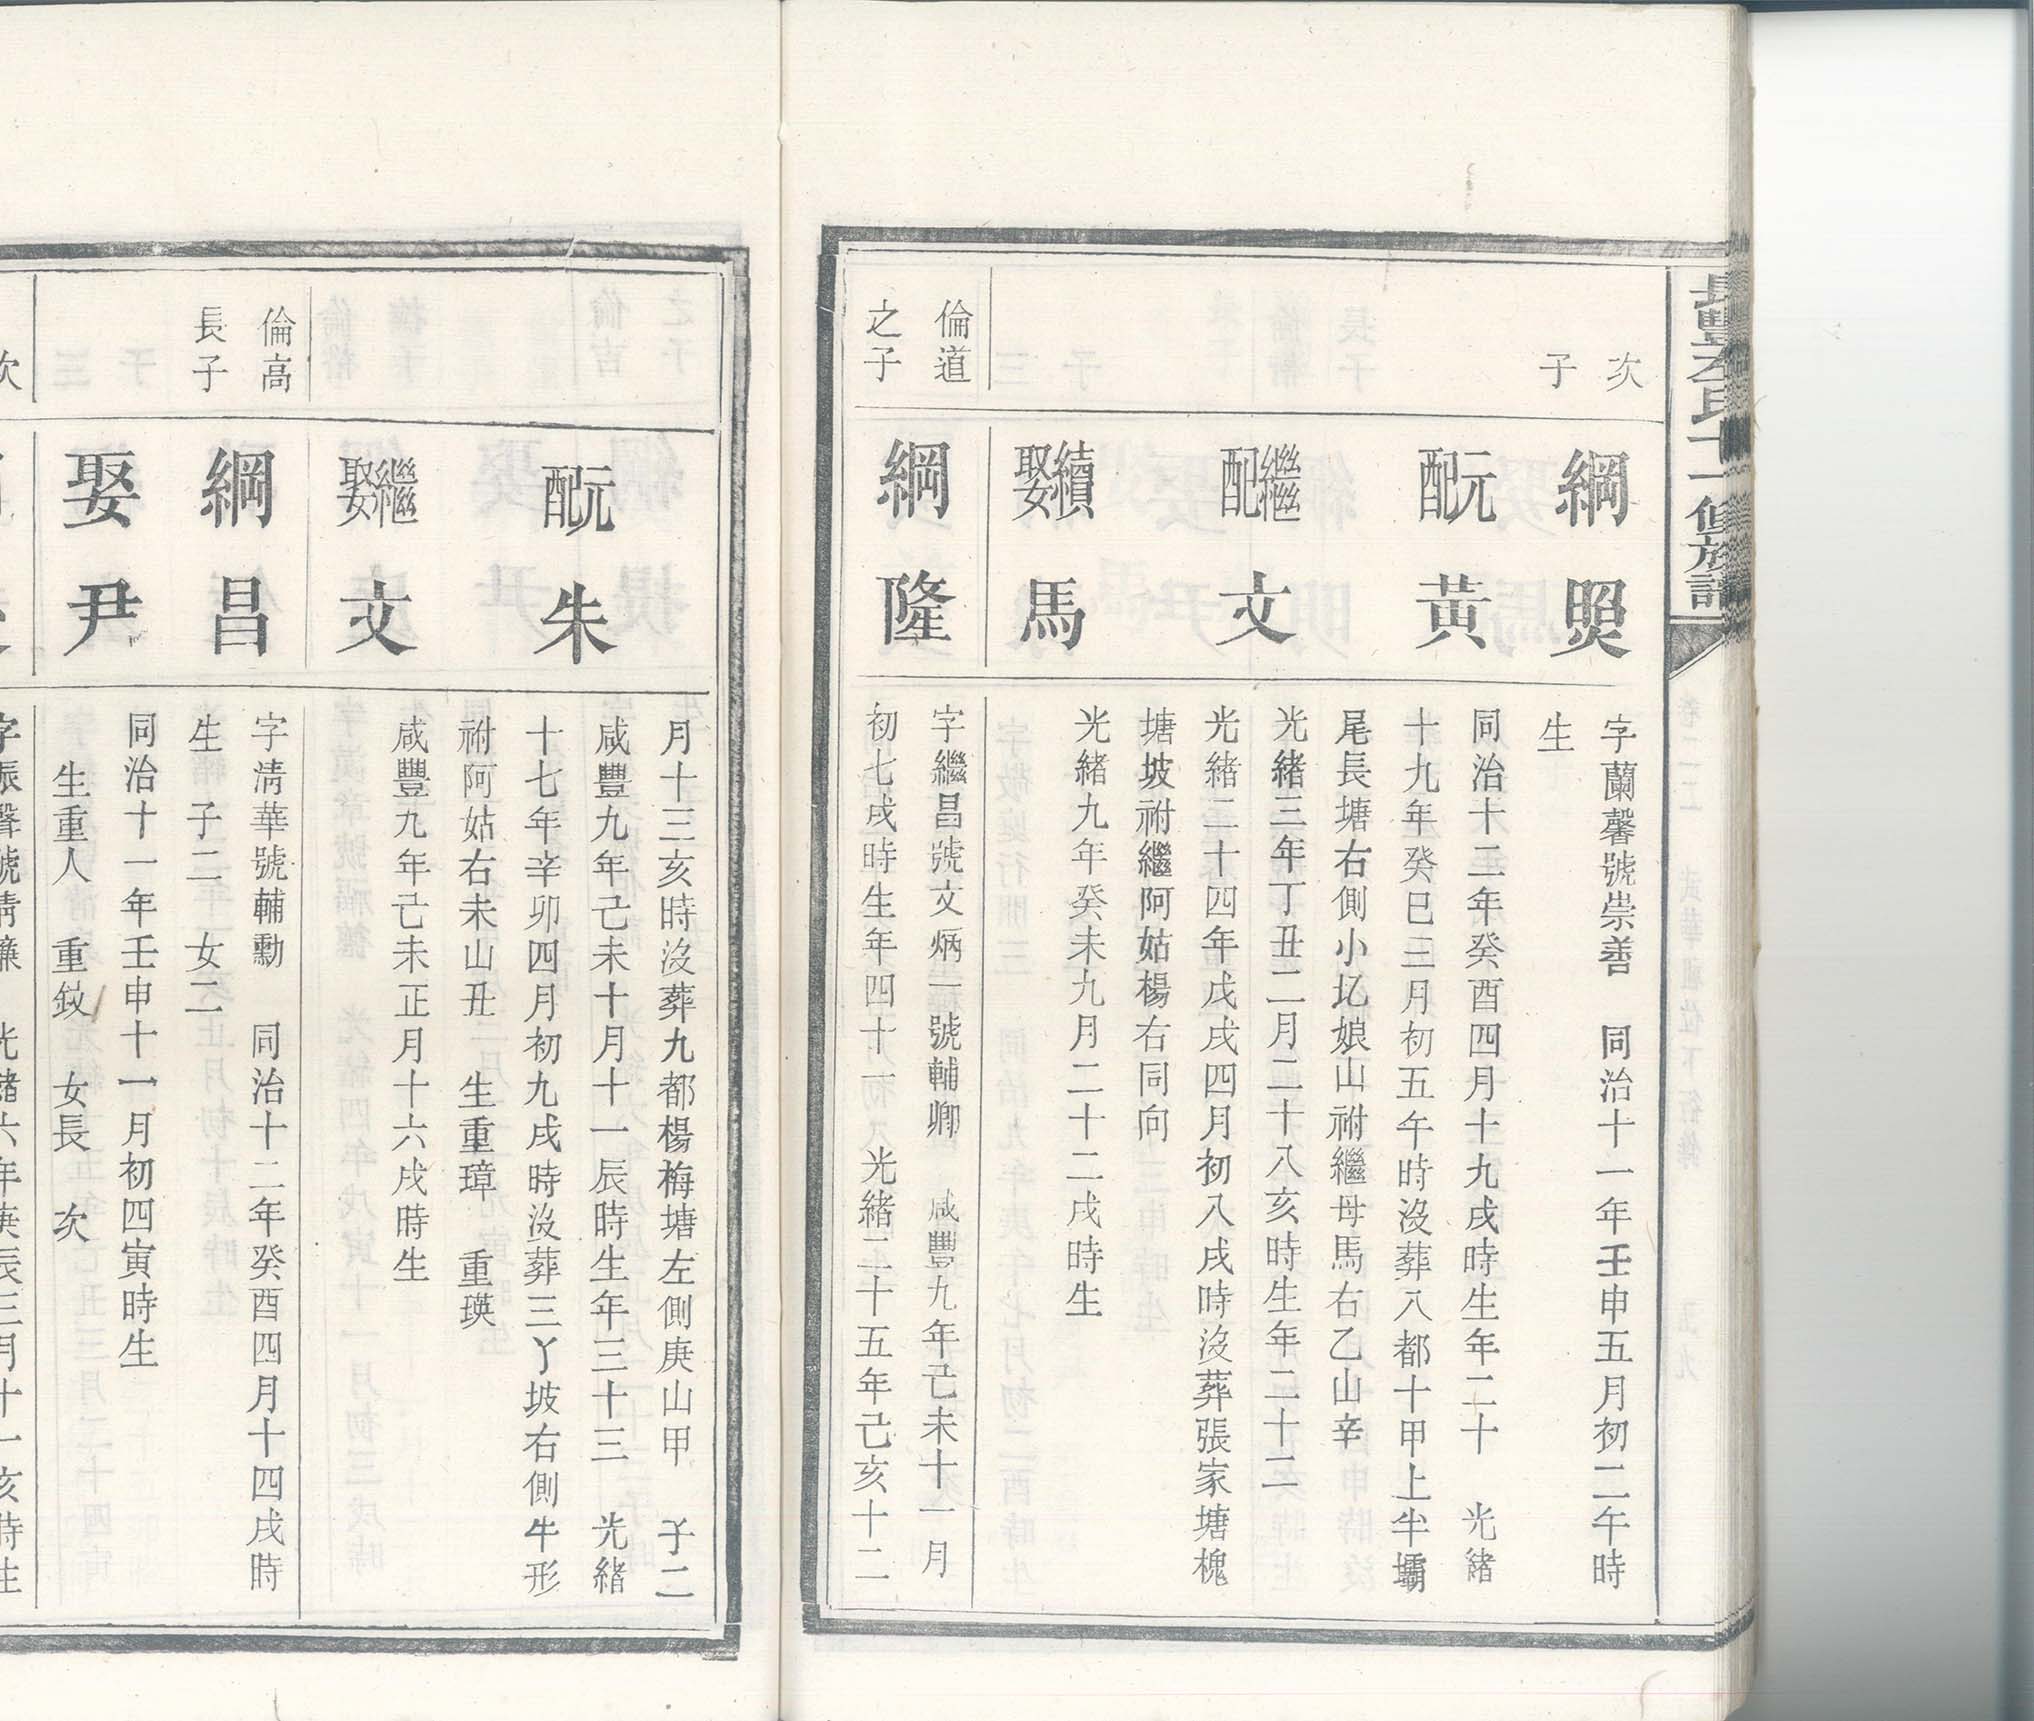 次子
綱照
字蘭馨號崇善 同治十一年壬申五月初二午時
生
元配黃
同治十二年癸酉四月十九戌時生年二十 光緒
十九年癸巳三月初五午時沒葬八都十甲上半壩
尾長塘右側小圪娘山祔繼母馬右乙山辛
繼配文
光緒三年丁丑二月二十八亥時生年二十二
光緒二十四年戊戌四月初八戌時沒葬張家塘槐
塘坡祔繼阿姑楊右同向
續娶馬
光緒九年癸未九月二十二戌時生
倫道之子
綱隆
字繼昌號文炳一號輔卿 咸豐九年己未十一月
初七戌時生年四十一 光緒二十五年己亥十二
月十三亥時沒葬九都楊梅塘左側庚山甲 子二
元配朱
咸豐九年己未十月十一辰時生年三十三 光緒
十七年辛卯四月初九戌時沒葬三丫坡右側牛形
祔阿姑右未山丑 生重璋 重瑛
繼娶文
咸豐九年己未正月十六戌時生
倫高長子
綱昌
字清華號輔勳 同治十二年癸酉四月十四戌時
生 子二 女二
娶尹
同治十一年壬申十一月初四寅時生
生重人 重鈙 女長 次
次
字振聲號清廉 光緒六年庚辰三月十一亥時生